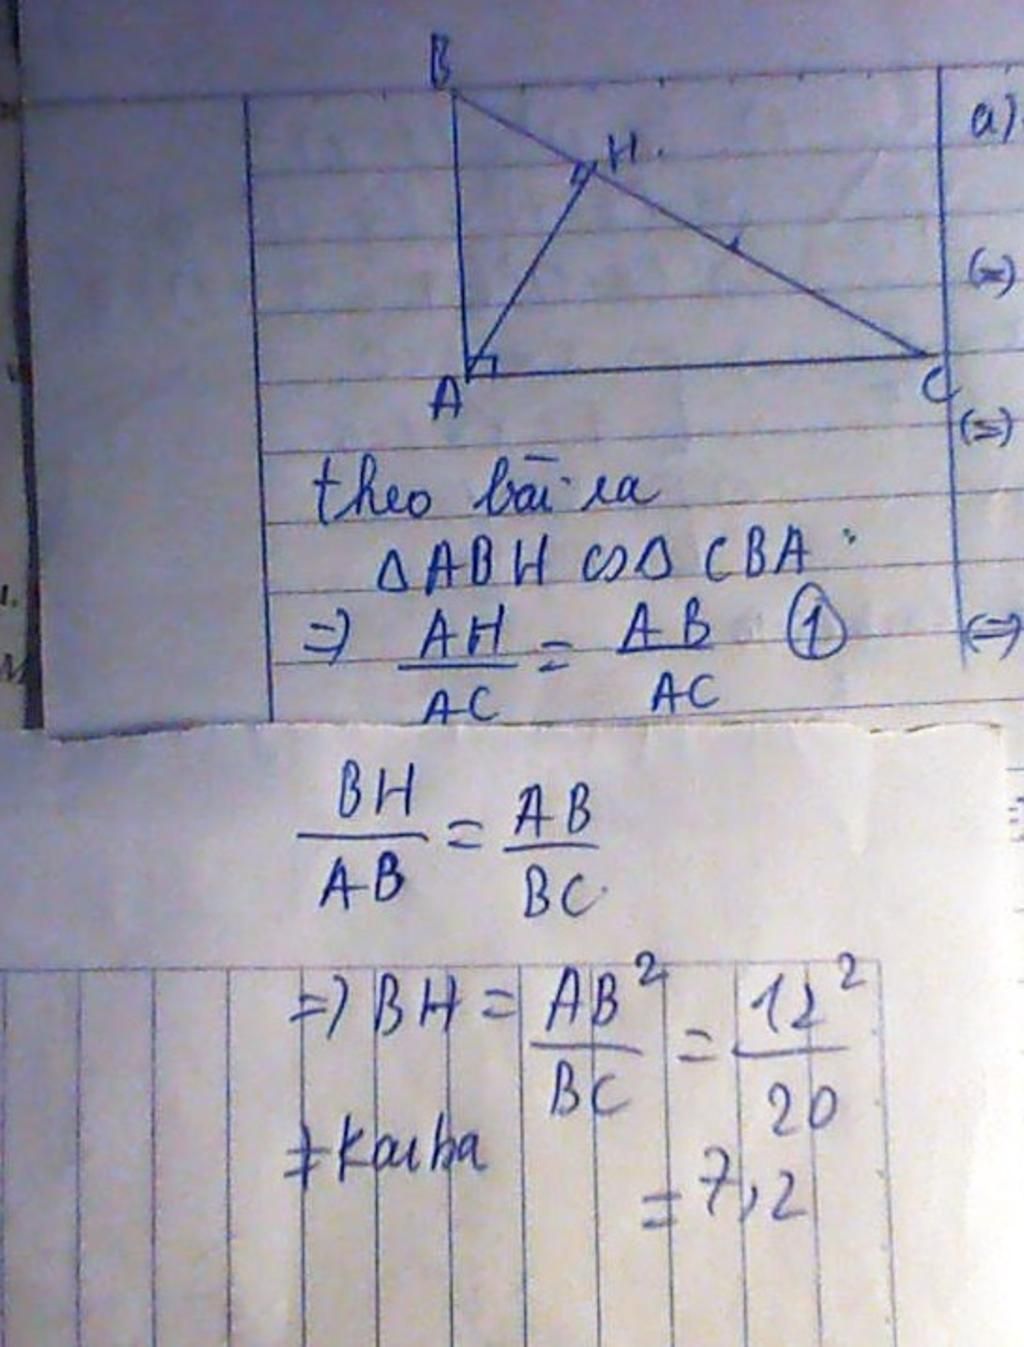 B
H.
a)
A
C
(=)
(=)
theo bài ra
Δ ABH ∽ Δ CBA
⇒ AH/AC = AB/AC ①
(=)
BH/AB = AB/BC
=) BH = AB²/BC = 12²/20
= 7,2